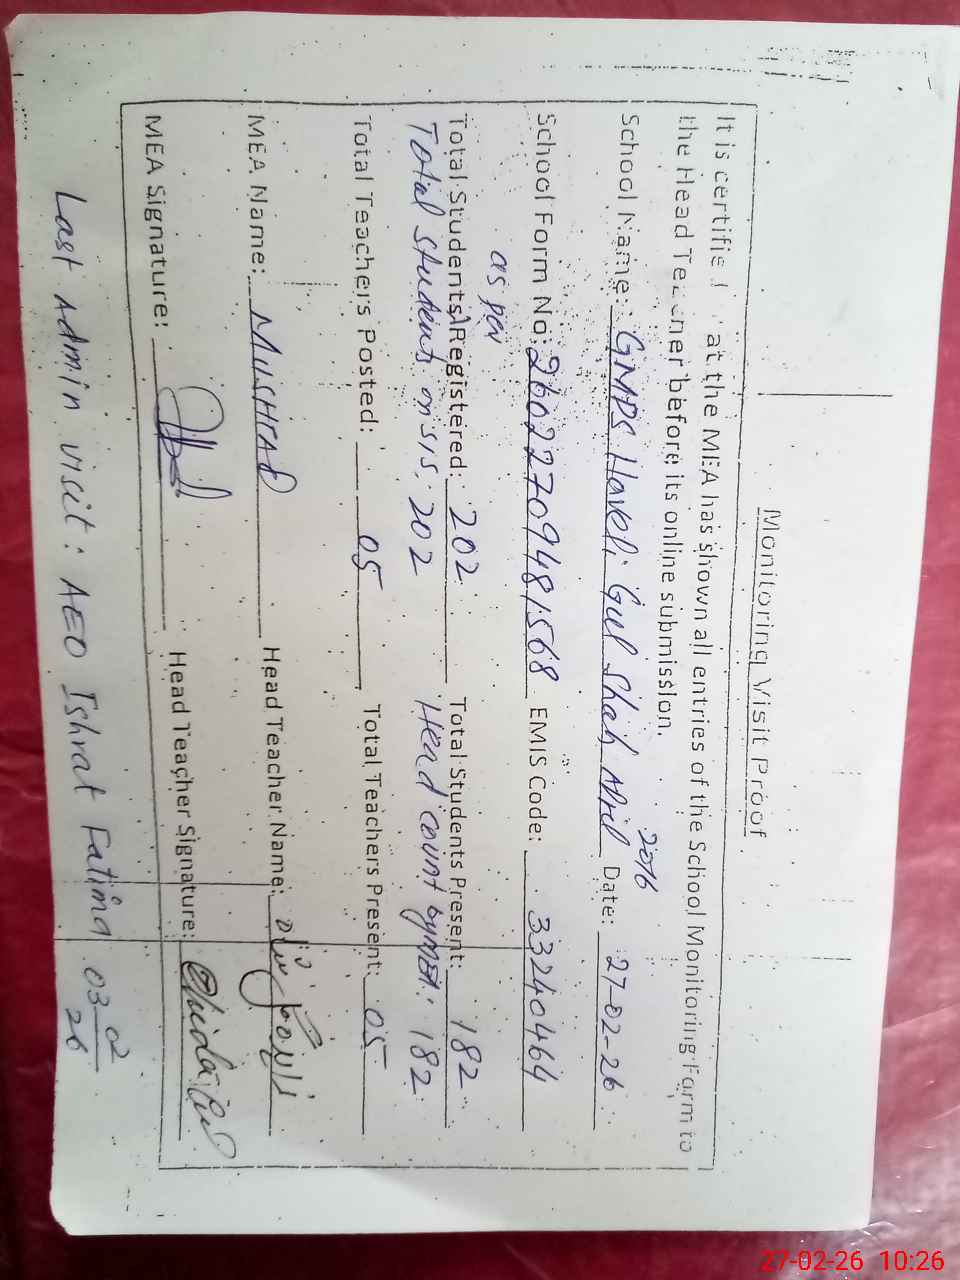 Monitoring Visit Proof
It is certified at the MEA has shown all entries of the School Monitoring Farm to
the Head Teacher before its online submission.
School Name: GMPS Haveli Gul Shah Date: 27-02-26
2016
School Form No: 26022709481568 EMIS Code: 33240464
as per
Total Students Registered: 202 Total Students Present: 182
Total students on SIS: 202 Head count by MEA: 182
Total Teachers Posted: 05 Total Teachers Present: 05
MEA Name: MUSHTAQ Head Teacher Name:
MEA Signature: Head Teacher Signature:
Last Admin visit: AEO Ishrat Fatima 03 02/26
27-02-26 10:26